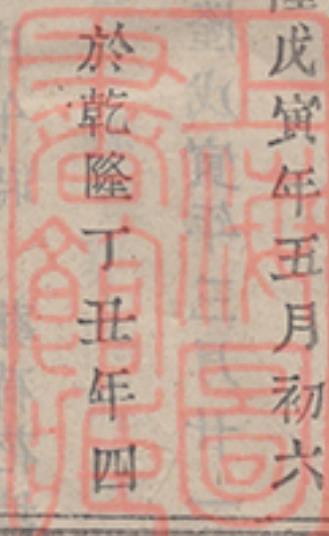 戊寅年五月初六
於乾隆丁丑年四